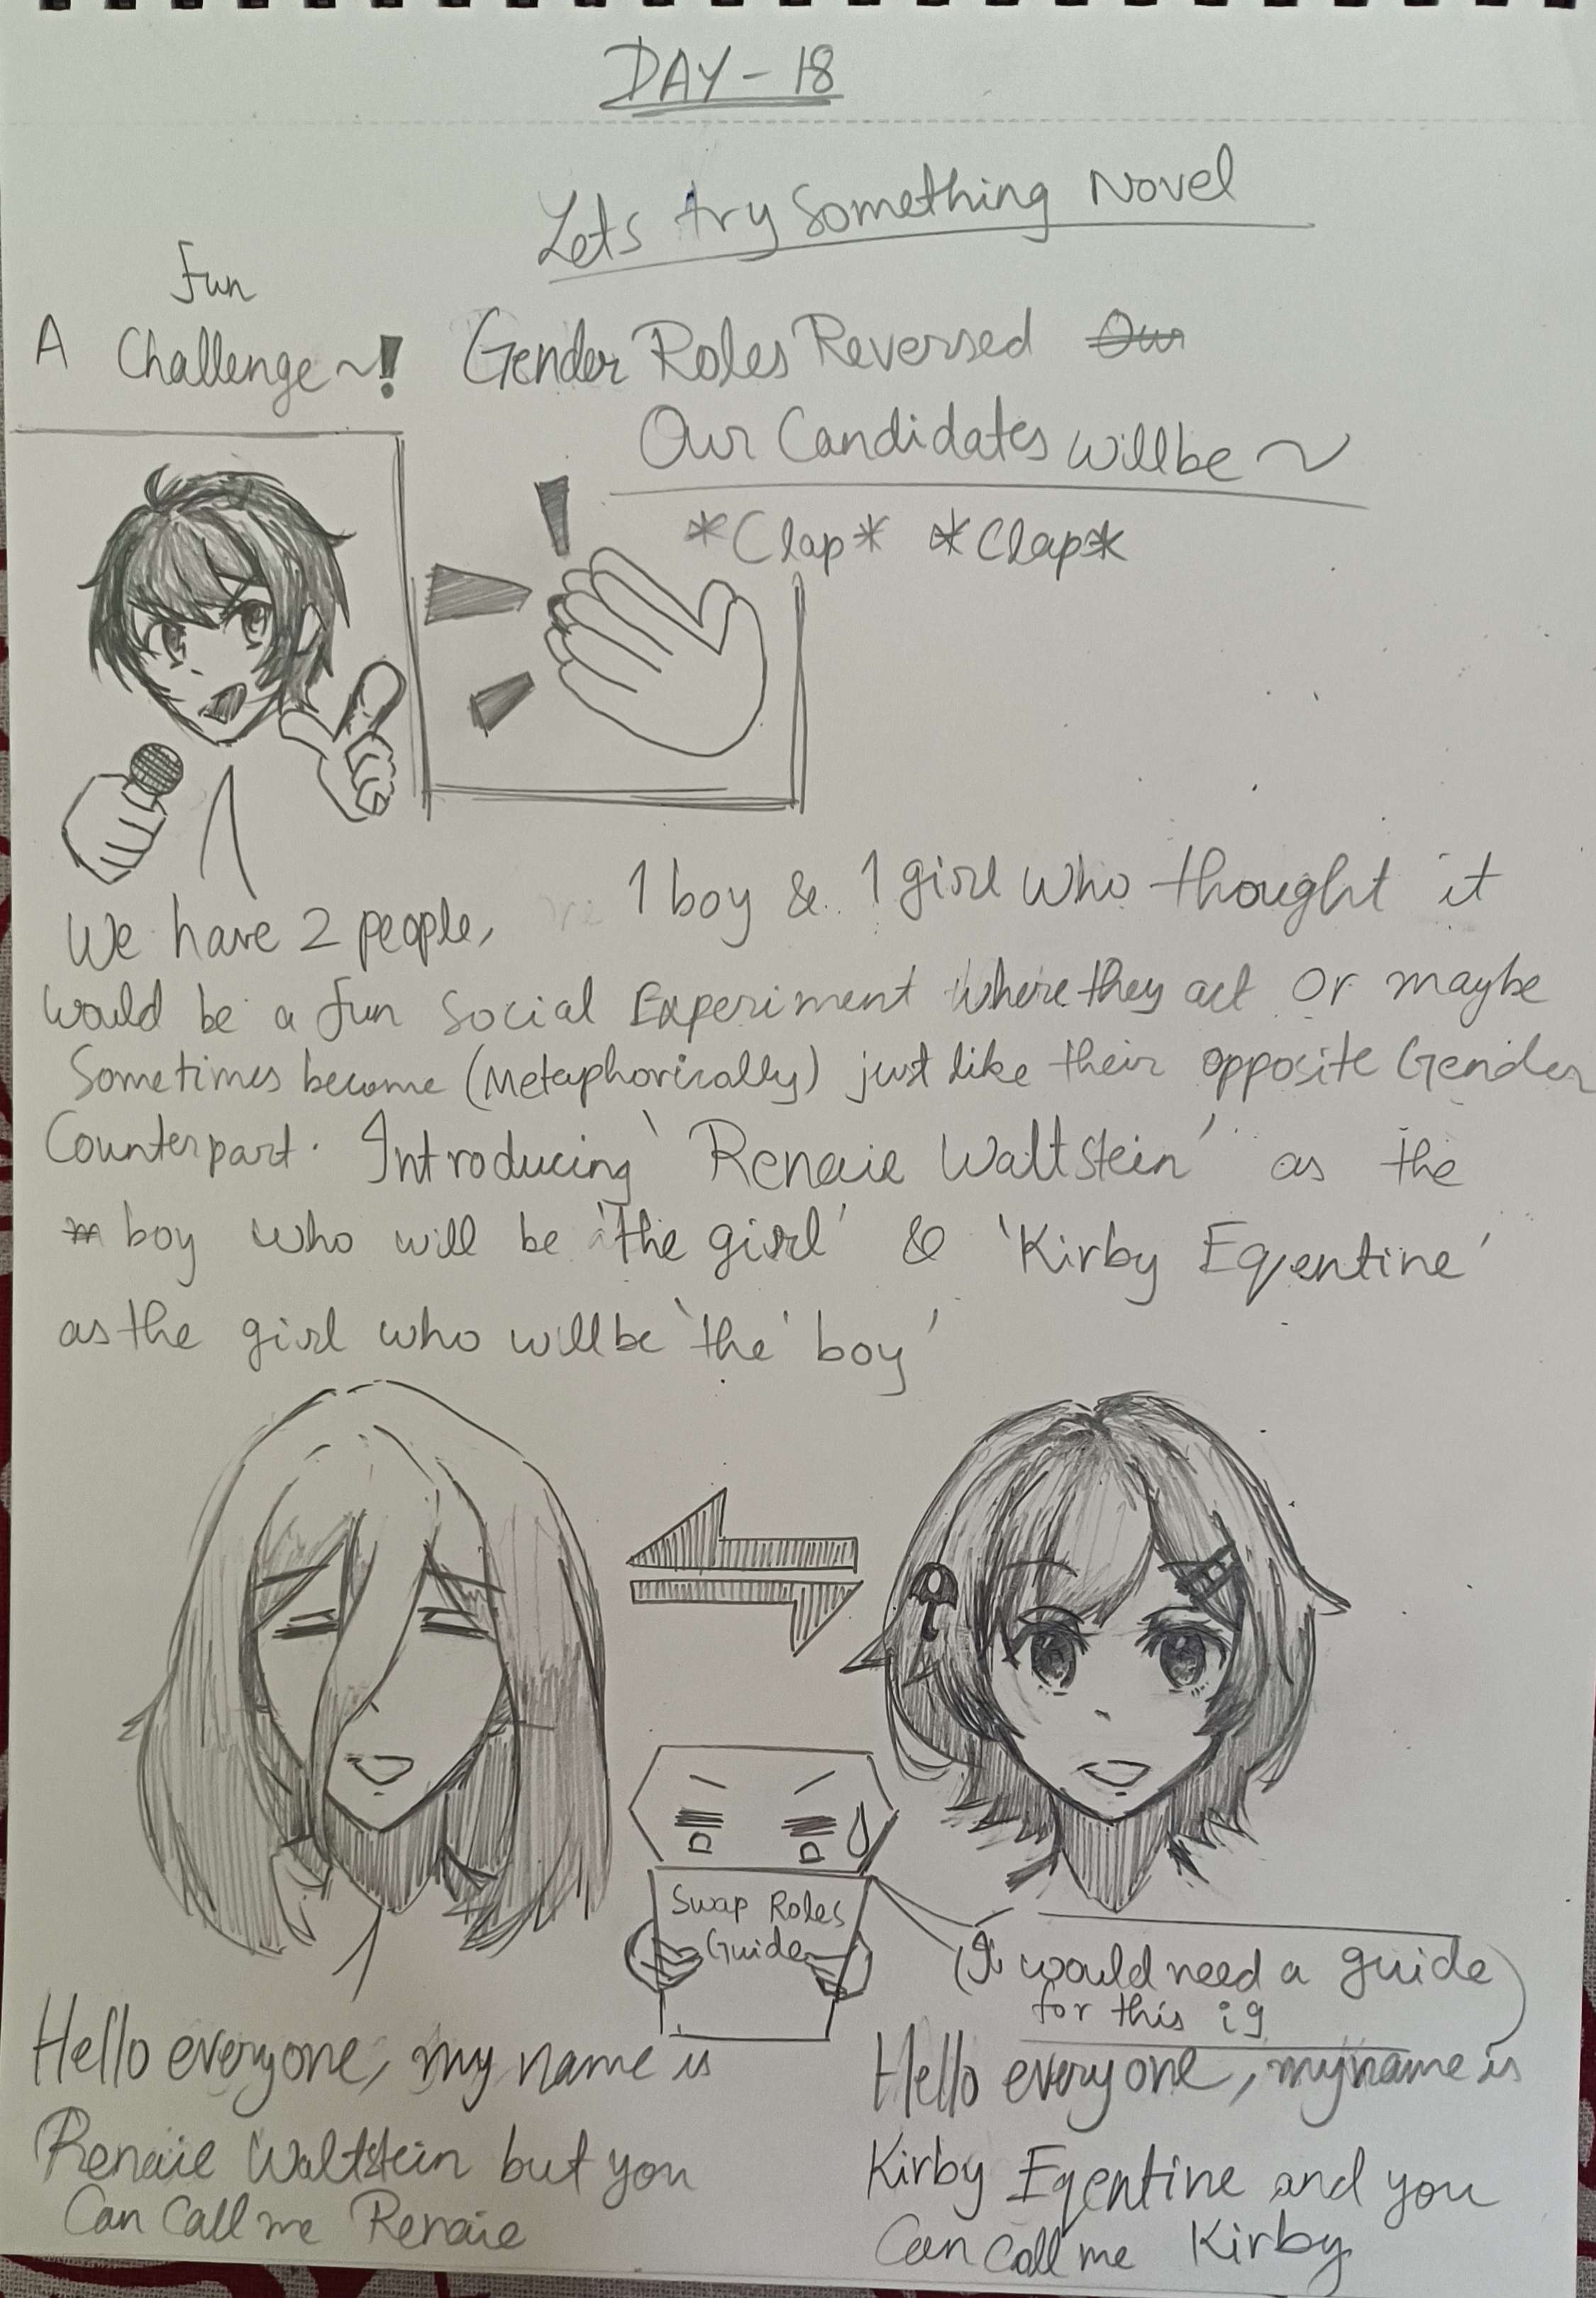 DAY - 18
Lets try something Novel
Fun
A Challenge ~!
Gender Roles Reversed Our
Our Candidates will be ~
*Clap* *Clap*
We have 2 people, 1 boy & 1 girl who thought it
would be a fun social Experiment where they act or maybe
Sometimes become (Metaphorically) just like their opposite Gender
Counterpart. Introducing 'Renaie Waltstein' as the
m boy who will be 'the girl' & 'Kirby Eqentine'
as the girl who will be 'the' boy'
Swap Roles
Guide
(I would need a guide
for this ig)
Hello everyone, my name is
Renaie Waltstein but you
Can Call me Renaie
Hello everyone, my name is
Kirby Eqentine and you
Can Call me Kirby